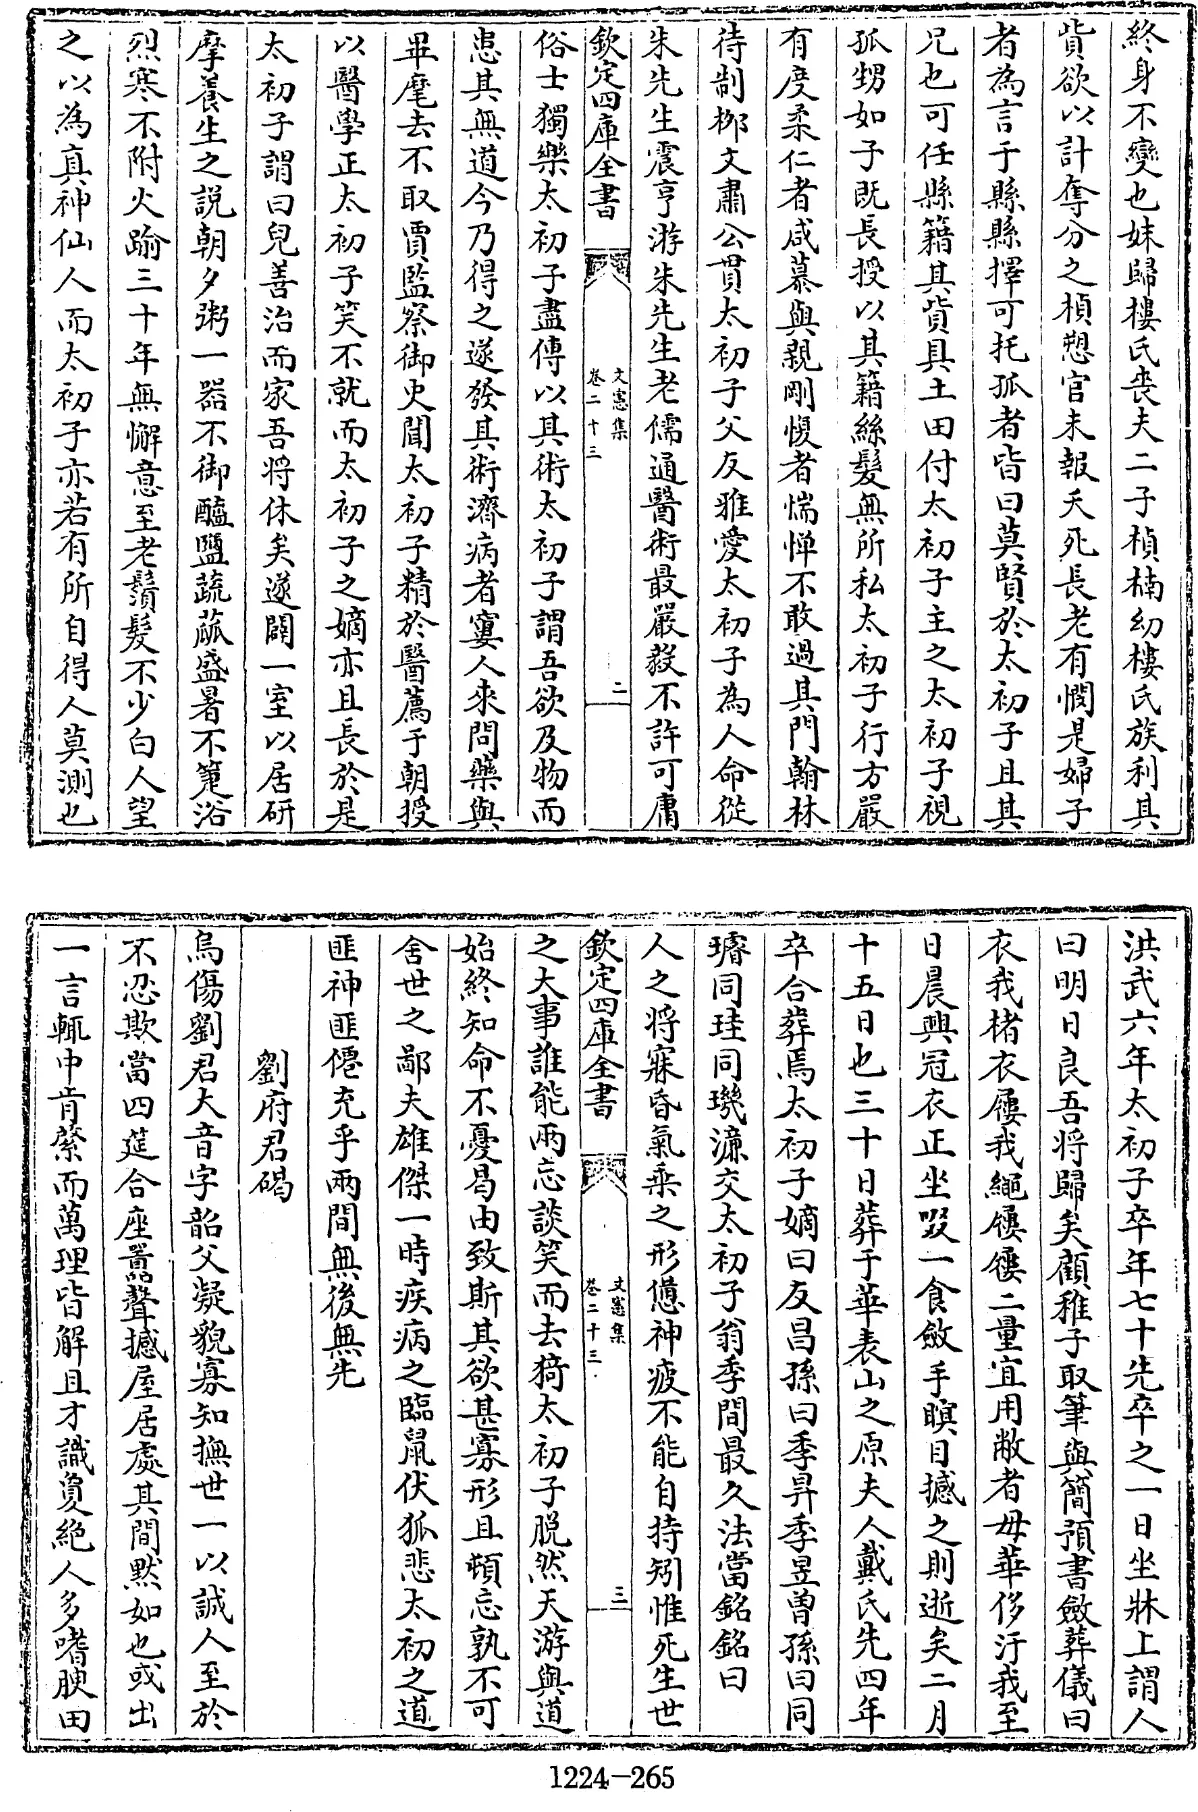 終身不變也妹歸樓氏喪夫二子楨楠幼樓氏族利其
貲欲以計奪分之楨愬官未報夭死長老有憫是婦子
者為言于縣縣擇可托孤者皆曰莫賢於太初子且其
兄也可任縣籍其貲具土田付太初子主之太初子視
孤甥如子既長授以其籍絲髮無所私太初子行方嚴
有度柔仁者咸慕與親剛愎者惴惮不敢過其門翰林
待制栁文肅公貫太初子父友雅愛太初子為人命從
朱先生震亨游朱先生老儒通醫術最嚴毅不許可庸
欽定四庫全書
文憲集
卷二十三
二
俗士獨樂太初子盡傳以其術太初子謂吾欲及物而
患其無道今乃得之遂發其術濟病者窶人來問藥與
畢麾去不取賈監察御史聞太初子精於醫薦于朝授
以醫學正太初子笑不就而太初子之嫡亦且長於是
太初子謂曰兒善治而家吾將休矣遂闢一室以居研
摩養生之說朝夕粥一器不御醯鹽蔬蓏盛暑不箑浴
烈寒不附火踰三十年無懈意至老鬚髮不少白人望
之以為真神仙人而太初子亦若有所自得人莫測也
洪武六年太初子卒年七十先卒之一日坐牀上謂人
曰明日良吾將歸矣顧稚子取筆與簡預書斂葬儀曰
衣我楮衣屨我繩屨屨二量宜用敝者毋華侈汙我至
日晨興冠衣正坐啜一食斂手瞑目撼之則逝矣二月
十五日也三十日葬于華表山之原夫人戴氏先四年
卒合葬焉太初子嫡曰友昌孫曰季昇季昱曽孫曰同
璿同珪同璣濂交太初子翁季間最久法當銘銘曰
人之將寐昏氣乗之形憊神疲不能自持矧惟死生世
欽定四庫全書
文憲集
卷二十三
三
之大事誰能兩忘談笑而去猗太初子脱然天游與道
始終知命不憂曷由致斯其欲甚寡形且頓忘孰不可
舍世之鄙夫雄傑一時疾病之臨鼠伏狐悲太初之道
匪神匪僊充乎兩間無後無先
劉府君碣
烏傷劉君大音字韶父凝貌寡知撫世一以誠人至於
不忍欺當四筵合座嚚聲撼屋居處其間默如也或出
一言輒中肯綮而萬理皆解且才識夐絶人多嗜腴田
1224-265